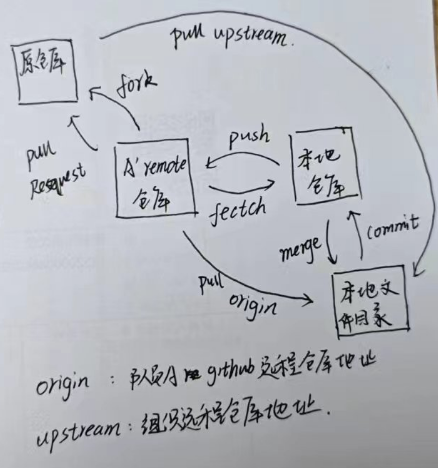 pull upstream.
原仓库
fork
pull
Resquest
A'remote
仓库
push
fectch
本地
仓库
merge
commit
pull
origin
本地文
件目录
origin : 队员A github远程仓库地址
upstream : 组织远程仓库地址.